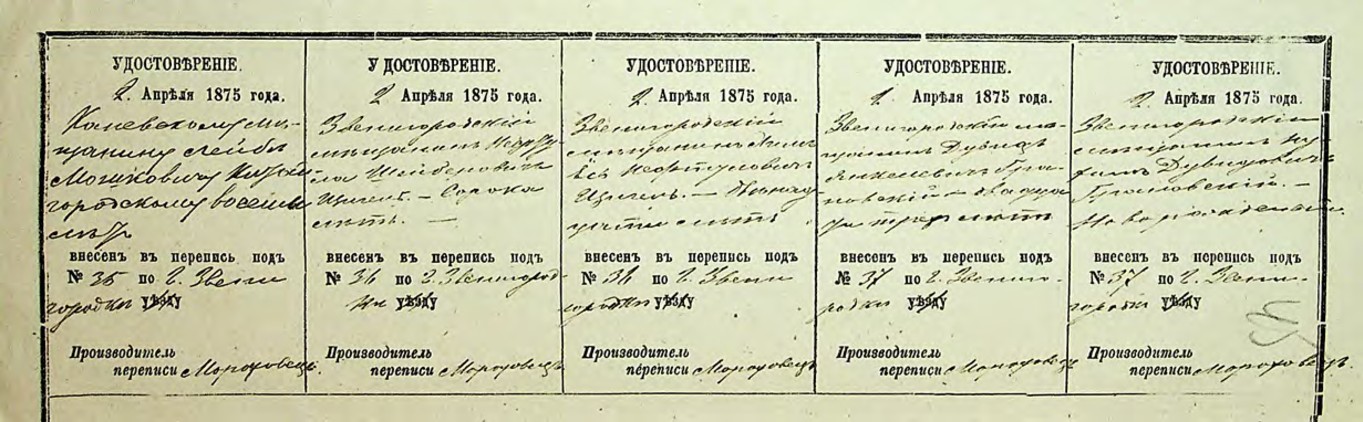 УДОСТОВѢРЕНІЕ.
2 Апрѣля 1875 года.
Каневскому мѣ-
щанину Лейбѣ
Мошковичу
городскому восемь
лѣтъ
внесенъ въ перепись подъ
№ 35 по г. Звени
городки уѣзду
Производитель
переписи Мороховецъ
УДОСТОВѢРЕНІЕ.
2 Апрѣля 1875 года.
Звенигородскій
мѣщанинъ
Шейберовичъ
Сорока
лѣтъ. —
внесенъ въ перепись подъ
№ 36 по г. Звенигород-
ки уѣзду
Производитель
переписи Мороховецъ
УДОСТОВѢРЕНІЕ.
2 Апрѣля 1875 года.
Звенигородскій
мѣщанинъ
Нафтуловичъ
— Двѣнад
цати лѣтъ
внесенъ въ перепись подъ
№ 36 по г. Звени
городки уѣзду
Производитель
переписи Мороховецъ
УДОСТОВѢРЕНІЕ.
2 Апрѣля 1875 года.
Звенигородскій мѣ-
щанинъ Дувидъ
Янкелевичъ Гра-
новскій — двадца
ти трехъ лѣтъ
внесенъ въ перепись подъ
№ 37 по г. Звениго-
родки уѣзду
Производитель
переписи Мороховецъ
УДОСТОВѢРЕНІЕ.
2 Апрѣля 1875 года.
Звенигородскій
мѣщанинъ Ну
химъ Дувидовичъ
Грановскій. —
Новорожденный.
внесенъ въ перепись подъ
№ 37 по г. Звени-
городки уѣзду
Производитель
переписи Мороховецъ.